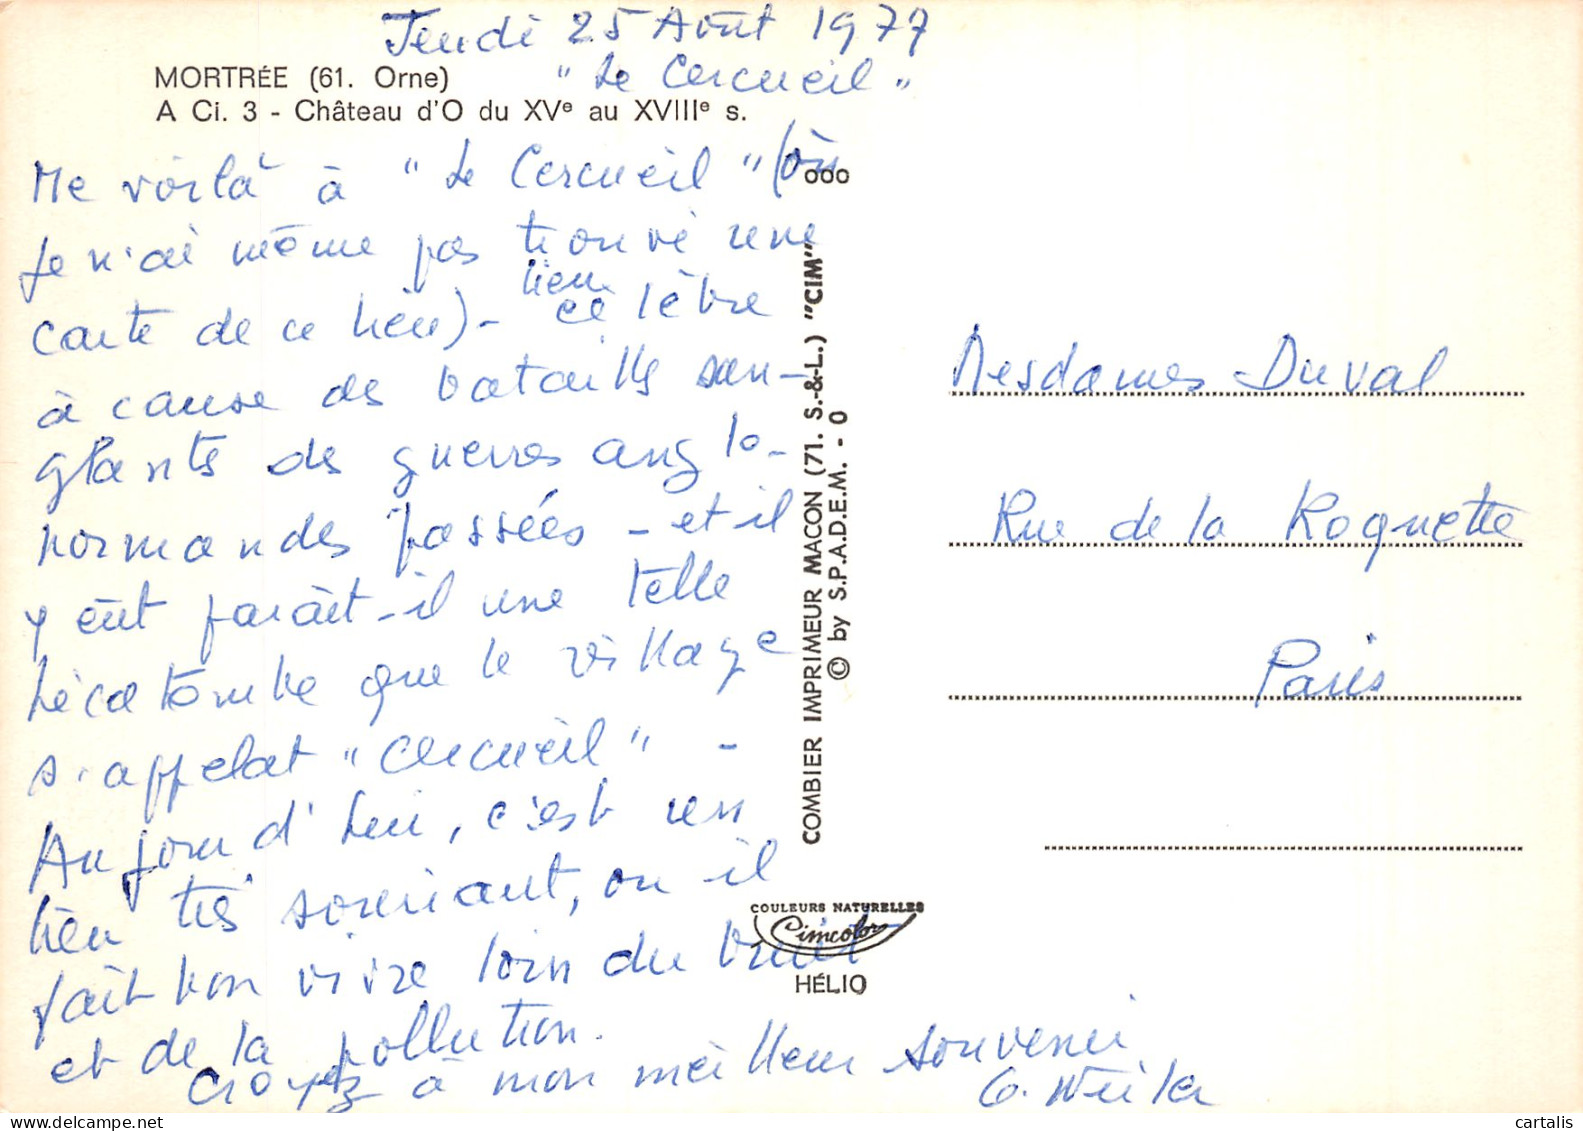 Jeudi 25 Août 1977
MORTRÉE (61. Orne)
"Le Cercueil"
A Ci. 3 - Château d'O du XVe au XVIIIe s.
Me voilà à "Le Cercueil" (où
je n'ai même pas trouvé une
carte de ce lieu) - lieu célèbre
à cause des batailles san-
glantes des guerres anglo-
normandes passées - et il
y eût paraît-il une telle
hécatombe que le village
s'appelat "Cercueil" -
Aujourd'hui, c'est un
lieu très souriant, où il
fait bon vivre loin du bruit
et de la pollution.
Croyez à mon meilleur souvenir
G.
Mesdames Duval
Rue de la Roquette
Paris
000
COMBIER IMPRIMEUR MACON (71. S.-&-L.) "CIM"
© by S.P.A.D.E.M. - O
COULEURS NATURELLES
Cimcolor
HÉLIO
cartalis
www.delcampe.net